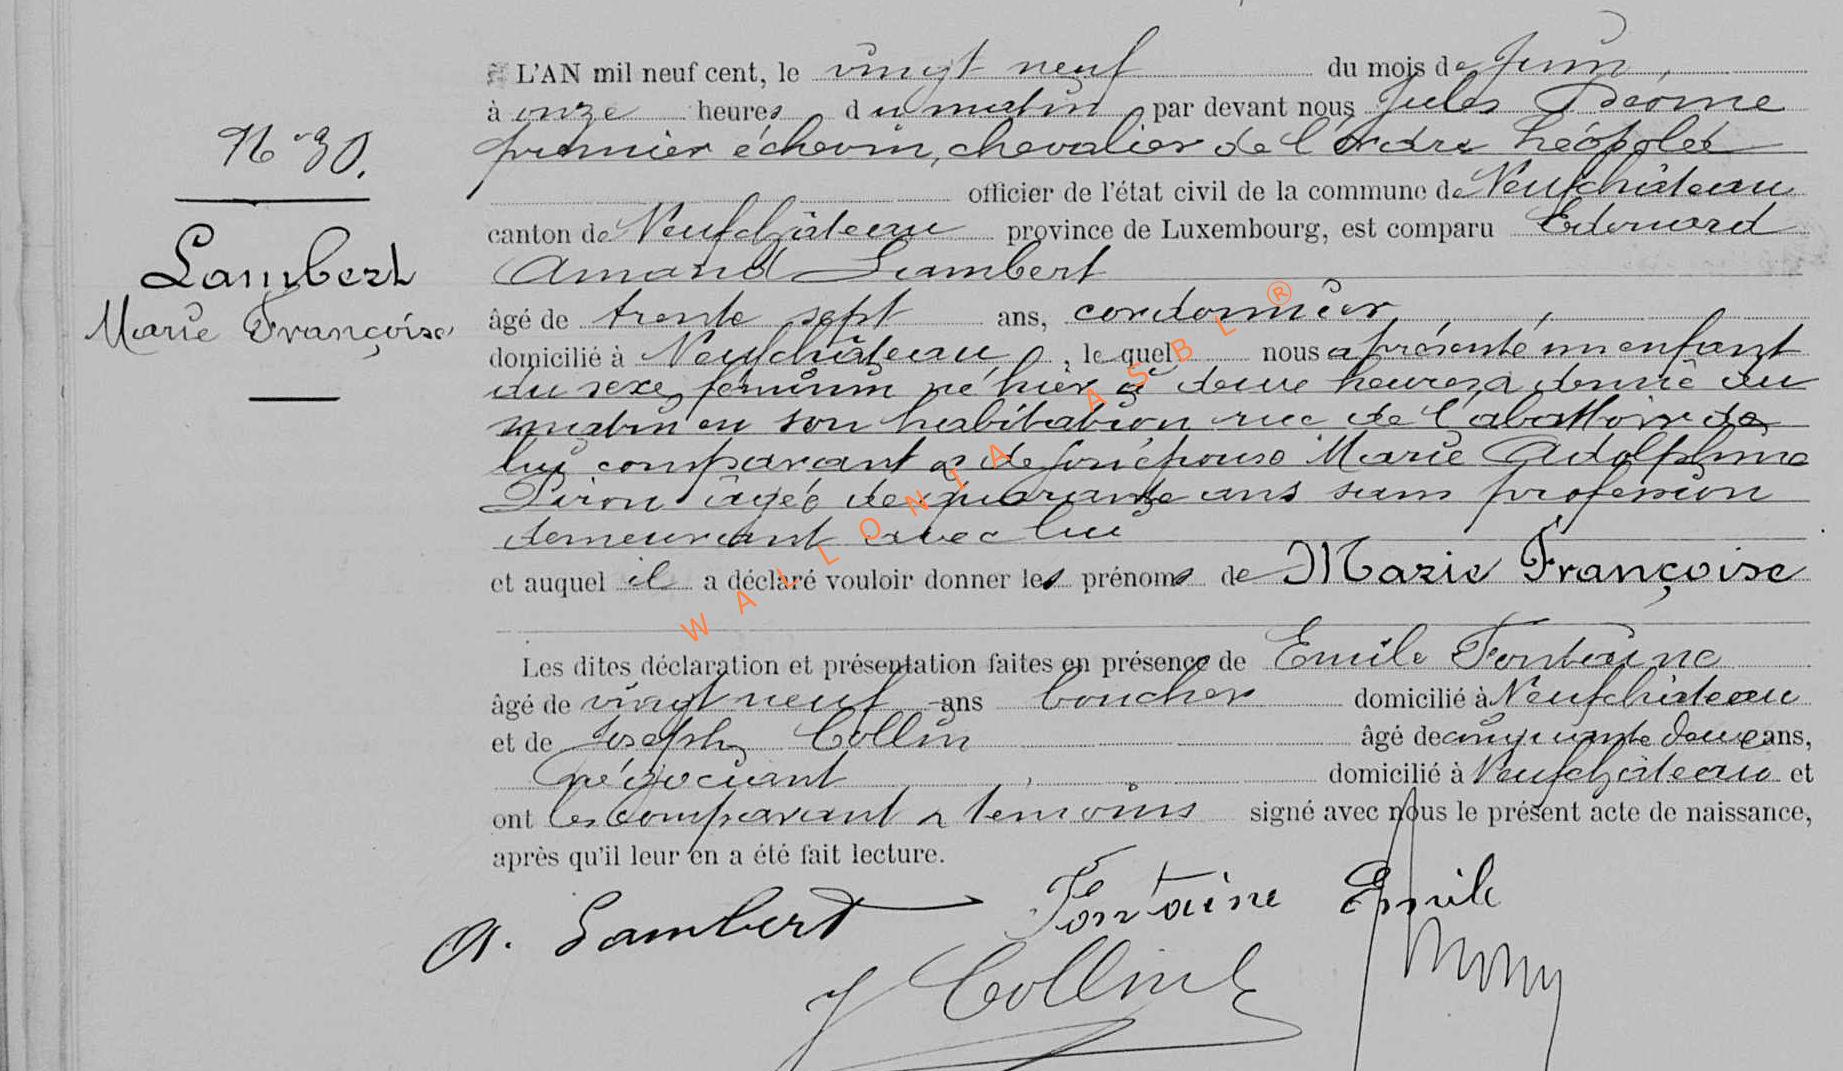 L'AN mil neuf cent, le vingt neuf du mois de Juin,
à onze heures du matin par devant nous Jules
premier échevin, chevalier de l'ordre Léopold
officier de l'état civil de la commune de Neufchâteau
canton de Neufchâteau province de Luxembourg, est comparu Edouard
Amand Lambert
âgé de trente sept ans, cordonnier,
domicilié à Neufchâteau, le quel nous a présenté un enfant
du sexe féminin né hier à deux heures & demie du
matin en son habitation rue de l'abattoir de
lui comparant & de son épouse Marie Adolphine
Piron âgée de quarante ans sans profession
demeurant avec lui
et auquel il a déclaré vouloir donner les prénoms de Marie Françoise
Les dites déclaration et présentation faites en présence de Emile Fontaine
âgé de vingt neuf ans boucher domicilié à Neufchâteau
et de Joseph Collin âgé de cinquante deux ans,
négociant domicilié à Neufchâteau et
ont les comparant & témoins signé avec nous le présent acte de naissance,
après qu'il leur en a été fait lecture.
A. Lambert Fontaine Emile
J Collin
N° 30.
Lambert
Marie Françoise
WALLONIA ASBL ®